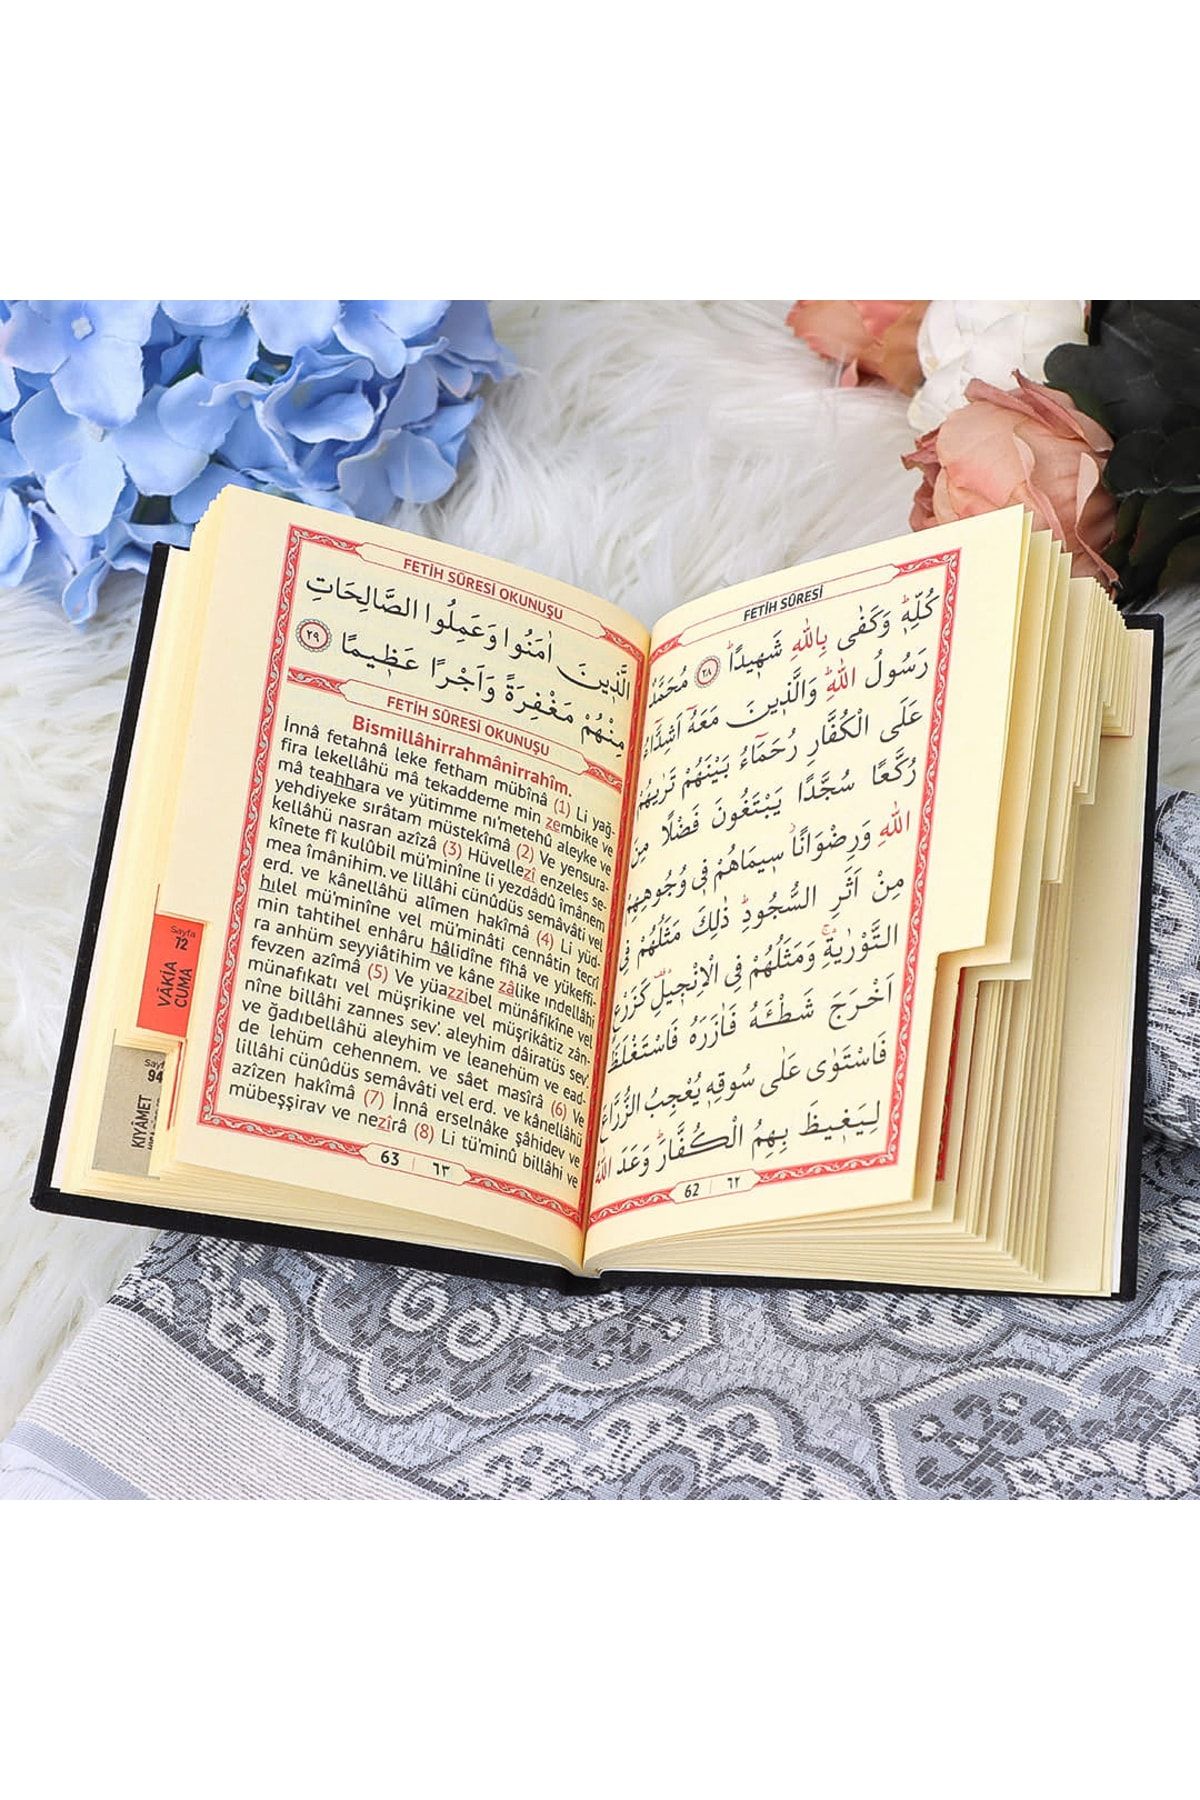 FETİH SÛRESİ
كُلِّهٖ وَكَفٰى بِاللّٰهِ شَهٖيدًا ٢٨ مُحَمَّدٌ
رَسُولُ اللّٰهِ وَالَّذٖينَ مَعَهُ اَشِدَّاءُ
عَلَى الْكُفَّارِ رُحَمَاءُ بَيْنَهُمْ تَرٰيهُمْ
رُكَّعًا سُجَّدًا يَبْتَغُونَ فَضْلًا مِنَ
اللّٰهِ وَرِضْوَانًا سٖيمَاهُمْ فٖى وُجُوهِهِمْ
مِنْ اَثَرِ السُّجُودِ ذٰلِكَ مَثَلُهُمْ فِى
التَّوْرٰيةِ وَمَثَلُهُمْ فِى الْاِنْجٖيلِ كَزَرْعٍ
اَخْرَجَ شَطْـَٔهُ فَاٰزَرَهُ فَاسْتَغْلَظَ
فَاسْتَوٰى عَلٰى سُوقِهٖ يُعْجِبُ الزُّرَّاعَ
لِيَغٖيظَ بِهِمُ الْكُفَّارَ وَعَدَ اللّٰهُ
62 | ٦٢
FETİH SÛRESİ OKUNUŞU
الَّذٖينَ اٰمَنُوا وَعَمِلُوا الصَّالِحَاتِ
مِنْهُمْ مَغْفِرَةً وَاَجْرًا عَظٖيمًا ٢٩
FETİH SÛRESİ OKUNUŞU
Bismillâhirrahmânirrahîm.
İnnâ fetahnâ leke fetham mübînâ (1) Li yağ-
fira lekellâhü mâ tekaddeme min zembike ve
mâ teahhara ve yütimme nı'metehû aleyke ve
yehdiyeke sırâtam müstekîmâ (2) Ve yensura-
kellâhü nasran azîzâ (3) Hüvellezî enzeles se-
kînete fî kulûbil mü'minîne li yezdâdû îmânem
mea îmânihim. ve lillâhi cünûdüs semâvâti vel
erd. ve kânellâhü alîmen hakîmâ (4) Li yüd-
hılel mü'minîne vel mü'minâti cennâtin tecrî
min tahtihel enhâru hâlidîne fîhâ ve yükeffi-
ra anhüm seyyiâtihim ve kâne zâlike ındellâhi
fevzen azîmâ (5) Ve yüazzibel münâfikîne vel
münafıkatı vel müşrikîne vel müşrikâtiz zân-
nîne billâhi zannes sev'. aleyhim dâiratüs sev'.
ve ğadıbellâhü aleyhim ve leanehüm ve ead-
de lehüm cehennem. ve sâet masîrâ (6) Ve
lillâhi cünûdüs semâvâti vel erd. ve kânellâhü
azîzen hakîmâ (7) İnnâ erselnâke şâhidev ve
mübeşşirav ve nezîrâ (8) Li tü'minû billâhi ve
63 | ٦٣
Sayfa
72
VÂKIA
CUMA
Sayfa
94
KIYÂMET